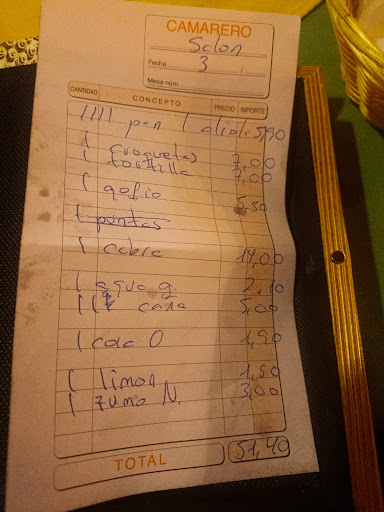 CAMARERO
Salon
Fecha 3
Mesa núm.
CANTIDAD CONCEPTO PRECIO IMPORTE
1111 pan 1 alioli 5,90
1 croquetas 7,00
1 tortilla 7,00
1 gofio 5,50
1 puntas
1 cabra 14,00
1 agua g. 2,10
11 caña 5,00
1 cola O 1,90
1 limon 1,50
1 zumo N. 3,00
TOTAL 51,40